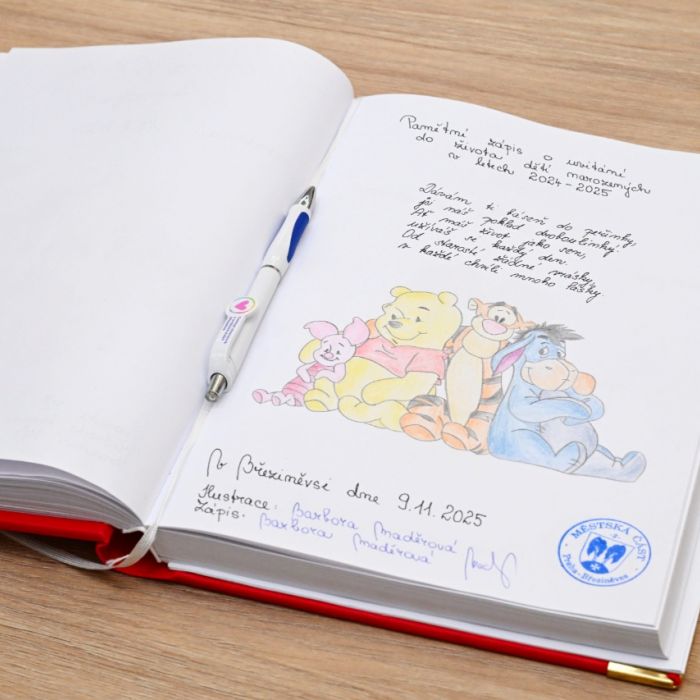 Pamětní zápis o uvítání
do života, dětí narozených
v letech 2024-2025
Dávám ti báseň do peřinky,
jsi náš poklad droboulinký!
Ať máš život jako sen,
užívej si každý den.
Od starostí žádné vrásky,
v každé chvíli mnoho lásky.
V Březiněvsi dne 9.11.2025
Ilustrace: Barbora Maděrová
Zápis: Barbora Maděrová
MĚSTSKÁ ČÁST
-2-
Praha-Březiněves